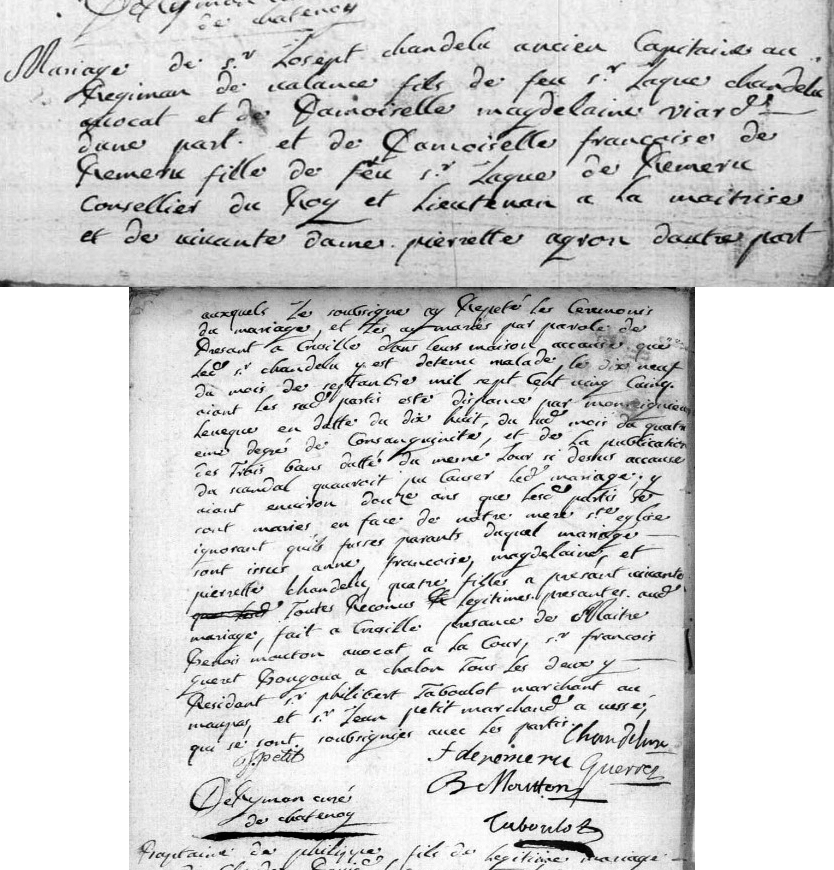 DeRyman curé
de chatenoy
Mariage de s.r Josept chandelu ancien Capitaine au
Regiman de valance fils de feu s.r Jaque chandelu
avocat et de Damoiselle magdelaine viard
dune part. et de Damoiselle francoise de
Remeru fille de feu s.r Jaque de Remeru
Consellier du Roy et Lieutenan a la maitrise
et de vivante dame. pierrette agron dautre part
auxquels Je soubsigne ay Repeté les Ceremonis
du mariage, et les ay mariés par parole de
Presant a Crusille dans leurs maison accause que
led. s.r chandelu y est detenu malade, le dix neuf
du mois de septanbre mil sept Cent cinq
aiant les sud. partis esté dispance par monseigneur
Leveque en datte du dix huit, du sud. mois du quatri
eme degré de Consanguinite, et de la publication
des Trois bans datté du meme Jour si dessus accause
du scandal quauroit pu Causer led. mariage. y
aiant environ douze ans que lesd. partis se
sont maries en face de notre mere s.te eglise
ignorant quils fusses parants duquel mariage
sont issus anne, francoise, magdelaine, et
pierrette Chandelu, quatre filles a presant vivante
Toutes Reconus legitimes. presantes. aud.
mariage, fait a Crusille presance de Maitre
Benois mouton avocat a la Cour, s.r francois
queret Bourgoua a chalon Tous les deux y
Residant s.r philibert Taboulot marchant au
maupas, et s.r Jean petit marchand a
qui se sont soubsignes avec les partis. Chandelux
J petit f deremeru Guerret
B Moutton
DeRyman curé
de chatenoy
Taboulot
Capitaine de philippe fils de Legitime mariage